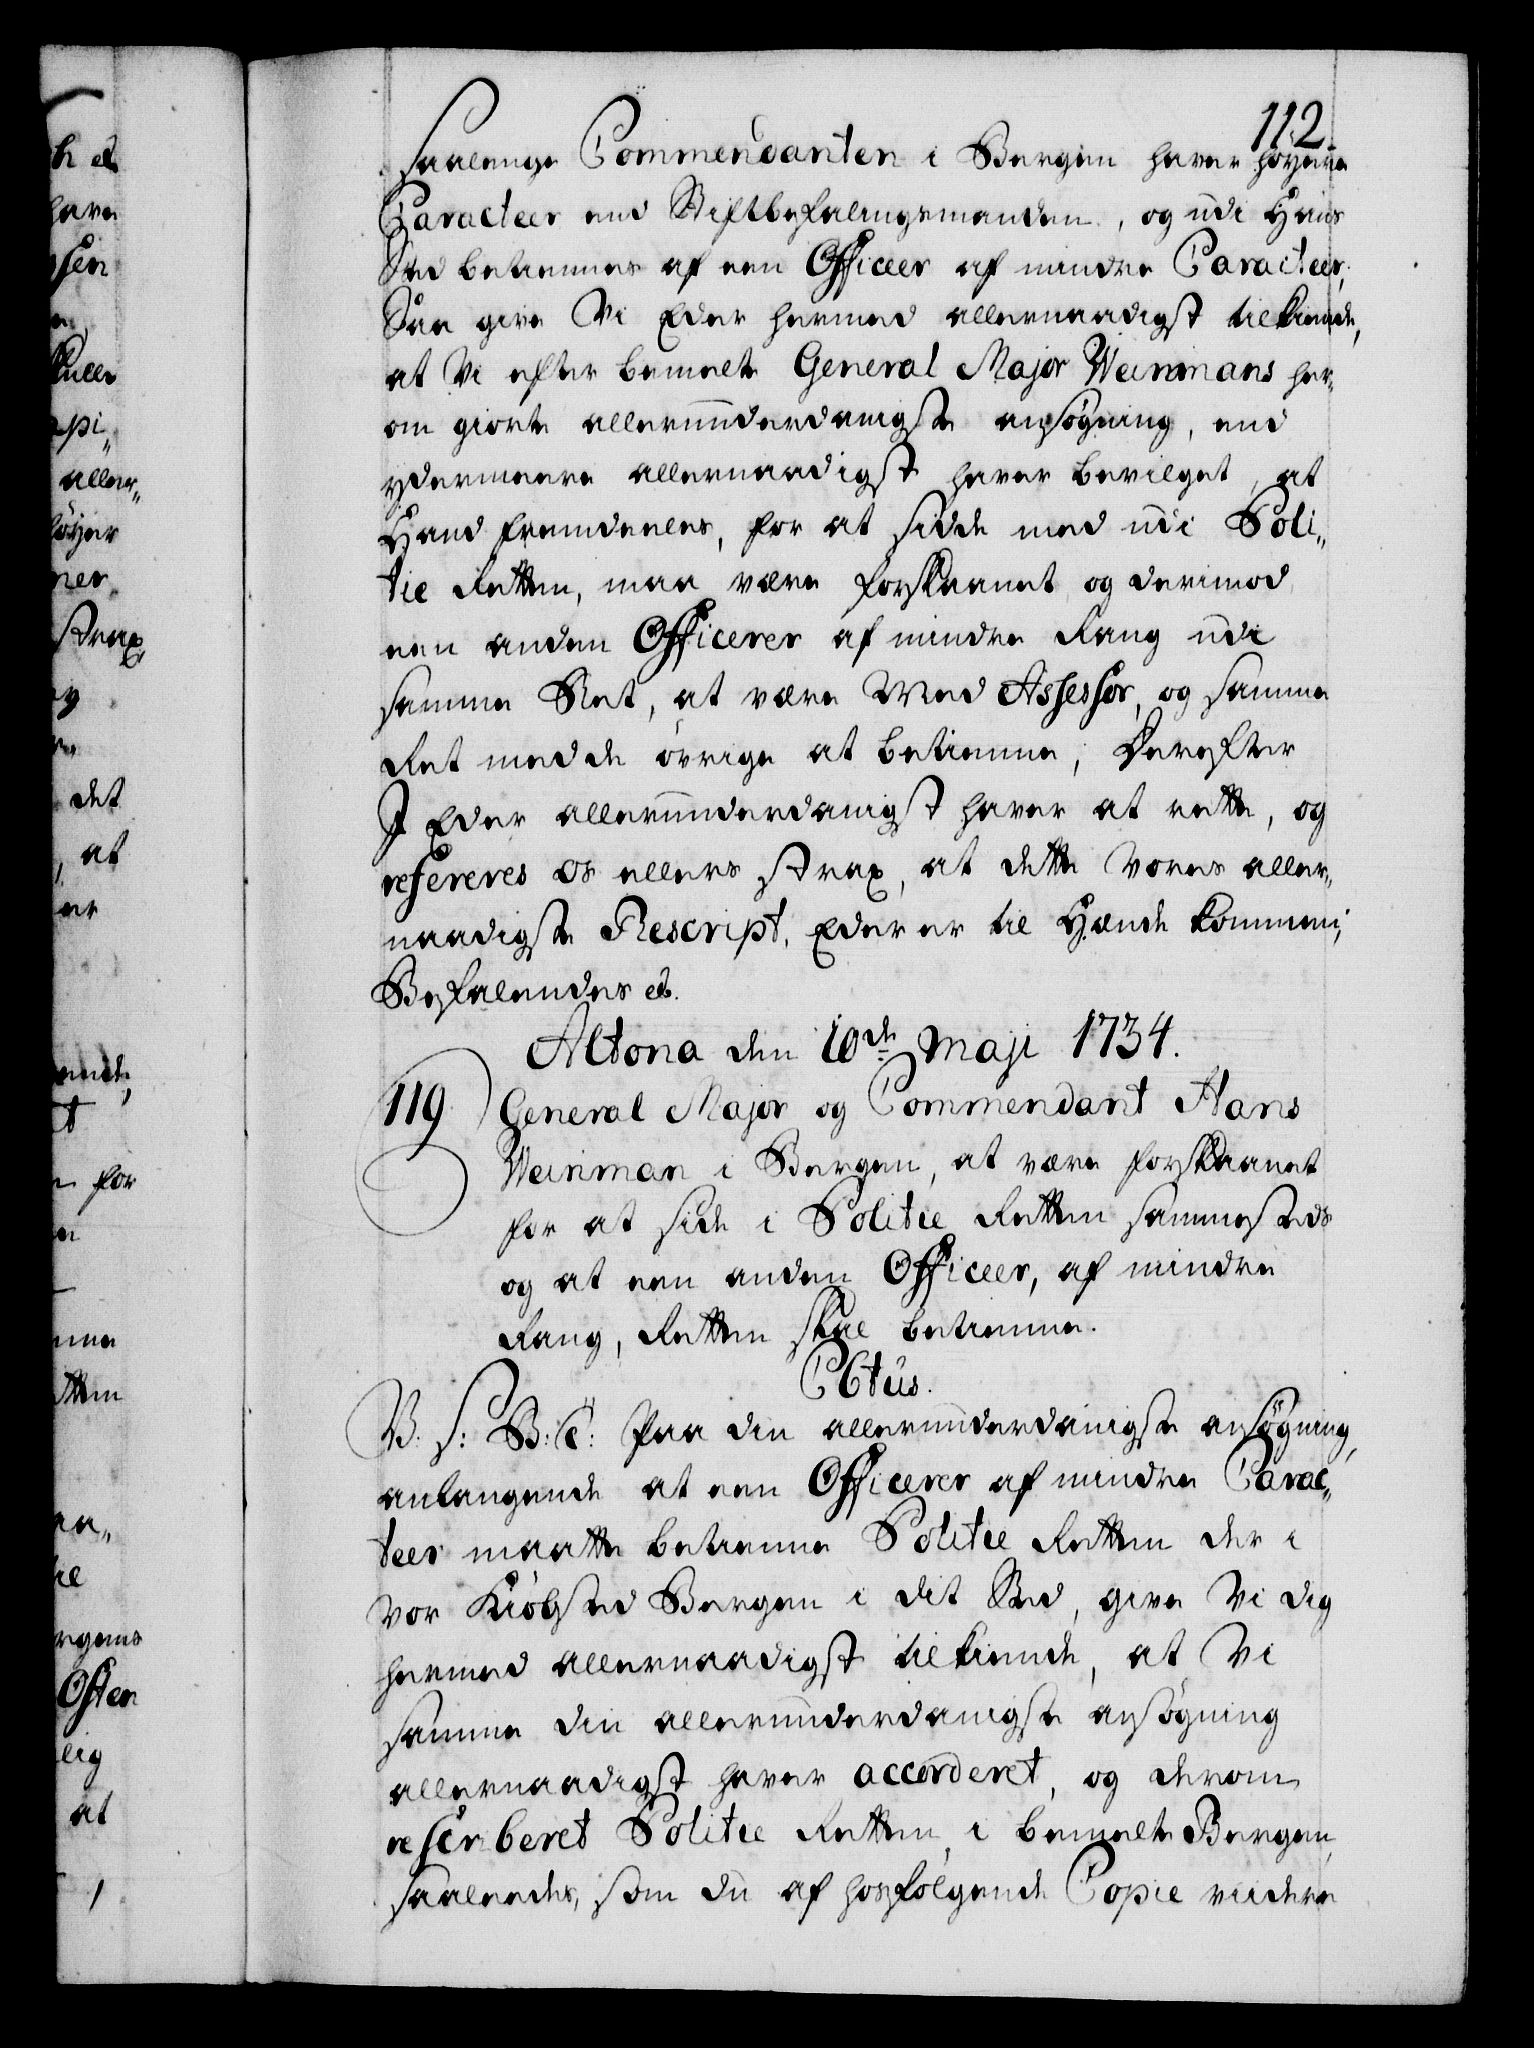 112.
saalenge Commendanten i Bergen haver høyere
Caracteer end Stiftbefalingsmanden, og udi Hans
Sted betiennes af een Officeer af mindre Caracteer;
Saa give Vi Eder hermed allernaadigst tilkiende,
at Vi efter bemelte General Major Weinmans her¬
om giorte allerunderdanigste ansøgning, end
ydermeere allernaadigst haver bevilget, at
Hand fremdeeles, for at sidde med udi Poli¬
tie Retten, maa være forskaanet og derimod
een anden Officerer af mindre Rang udi
samme Ret, at være Med Assessor, og samme
Ret med de øvrige at betienne; Derefter
I Eder allerunderdanigst haver at rette, og
refereres Os ellers strax, at dette Vores aller¬
naadigste Rescript, Eder er til Hænde kommen;
Befalendes etc.
Altona den 10de Maji 1734.
119 General Major og Commendant Hans
Weinman i Bergen, at være forskaanet
for at side i Politie Retten sammesteds
og at een anden Officeer, af mindre
Rang, Retten skal betienne.
C6tus.
V: S: B: G: Paa din allerunderdanigste ansøgning,
anlangende at een Officerer af mindre Carac¬
teer maatte betienne Politie Retten der i
vor Kiøbsted Bergen i dit Sted, give Vi dig
hermed allernaadigst tilkiende, at Vi
samme din allerunderdanigste ansøgning
allernaadigst haver accorderet, og derom
rescriberet Politie Retten i bemelte Bergen,
saaleedes, som du af hosfølgende Copie viidere